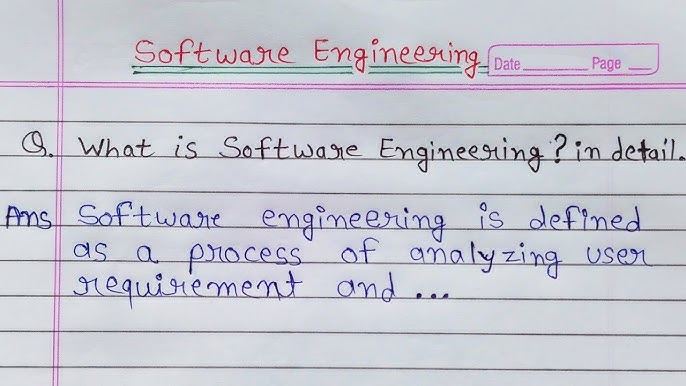 Software Engineering
Date Page
Q. What is Software Engineering? in detail.
Ans Software engineering is defined
as a process of analyzing user
requirement and ...